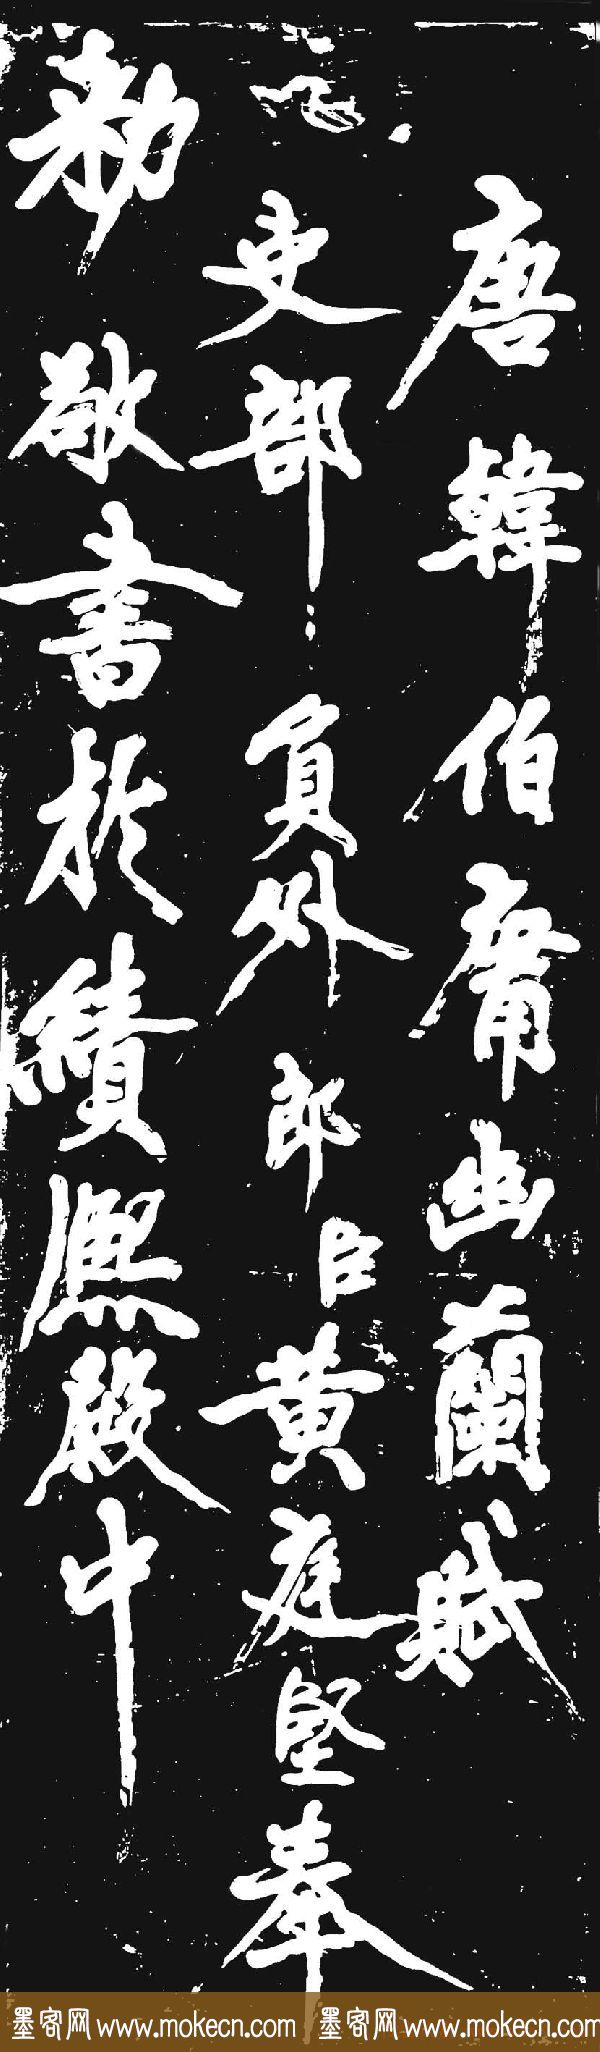 唐韓伯庸幽蘭賦
吏部員外郎臣黃庭堅奉
勅敬書於績熙殿中
墨客网 www.mokecn.com 墨客网 www.mokecn.com